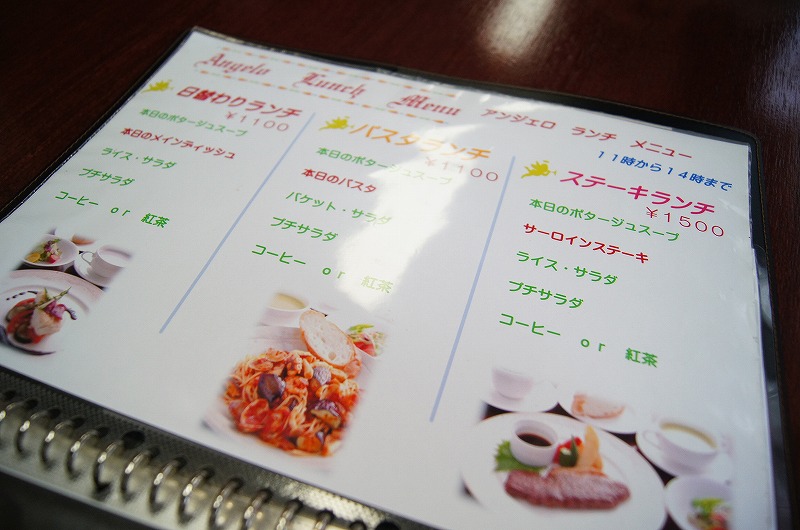 Angelo Lunch Menu アンジェロ ランチ メニュー
11時から14時まで
日替わりランチ
￥1100
本日のポタージュスープ
本日のメインディッシュ
ライス・サラダ
プチサラダ
コーヒー or 紅茶
パスタランチ
￥1100
本日のポタージュスープ
本日のパスタ
バケット・サラダ
プチサラダ
コーヒー or 紅茶
ステーキランチ
￥1500
本日のポタージュスープ
サーロインステーキ
ライス・サラダ
プチサラダ
コーヒー or 紅茶